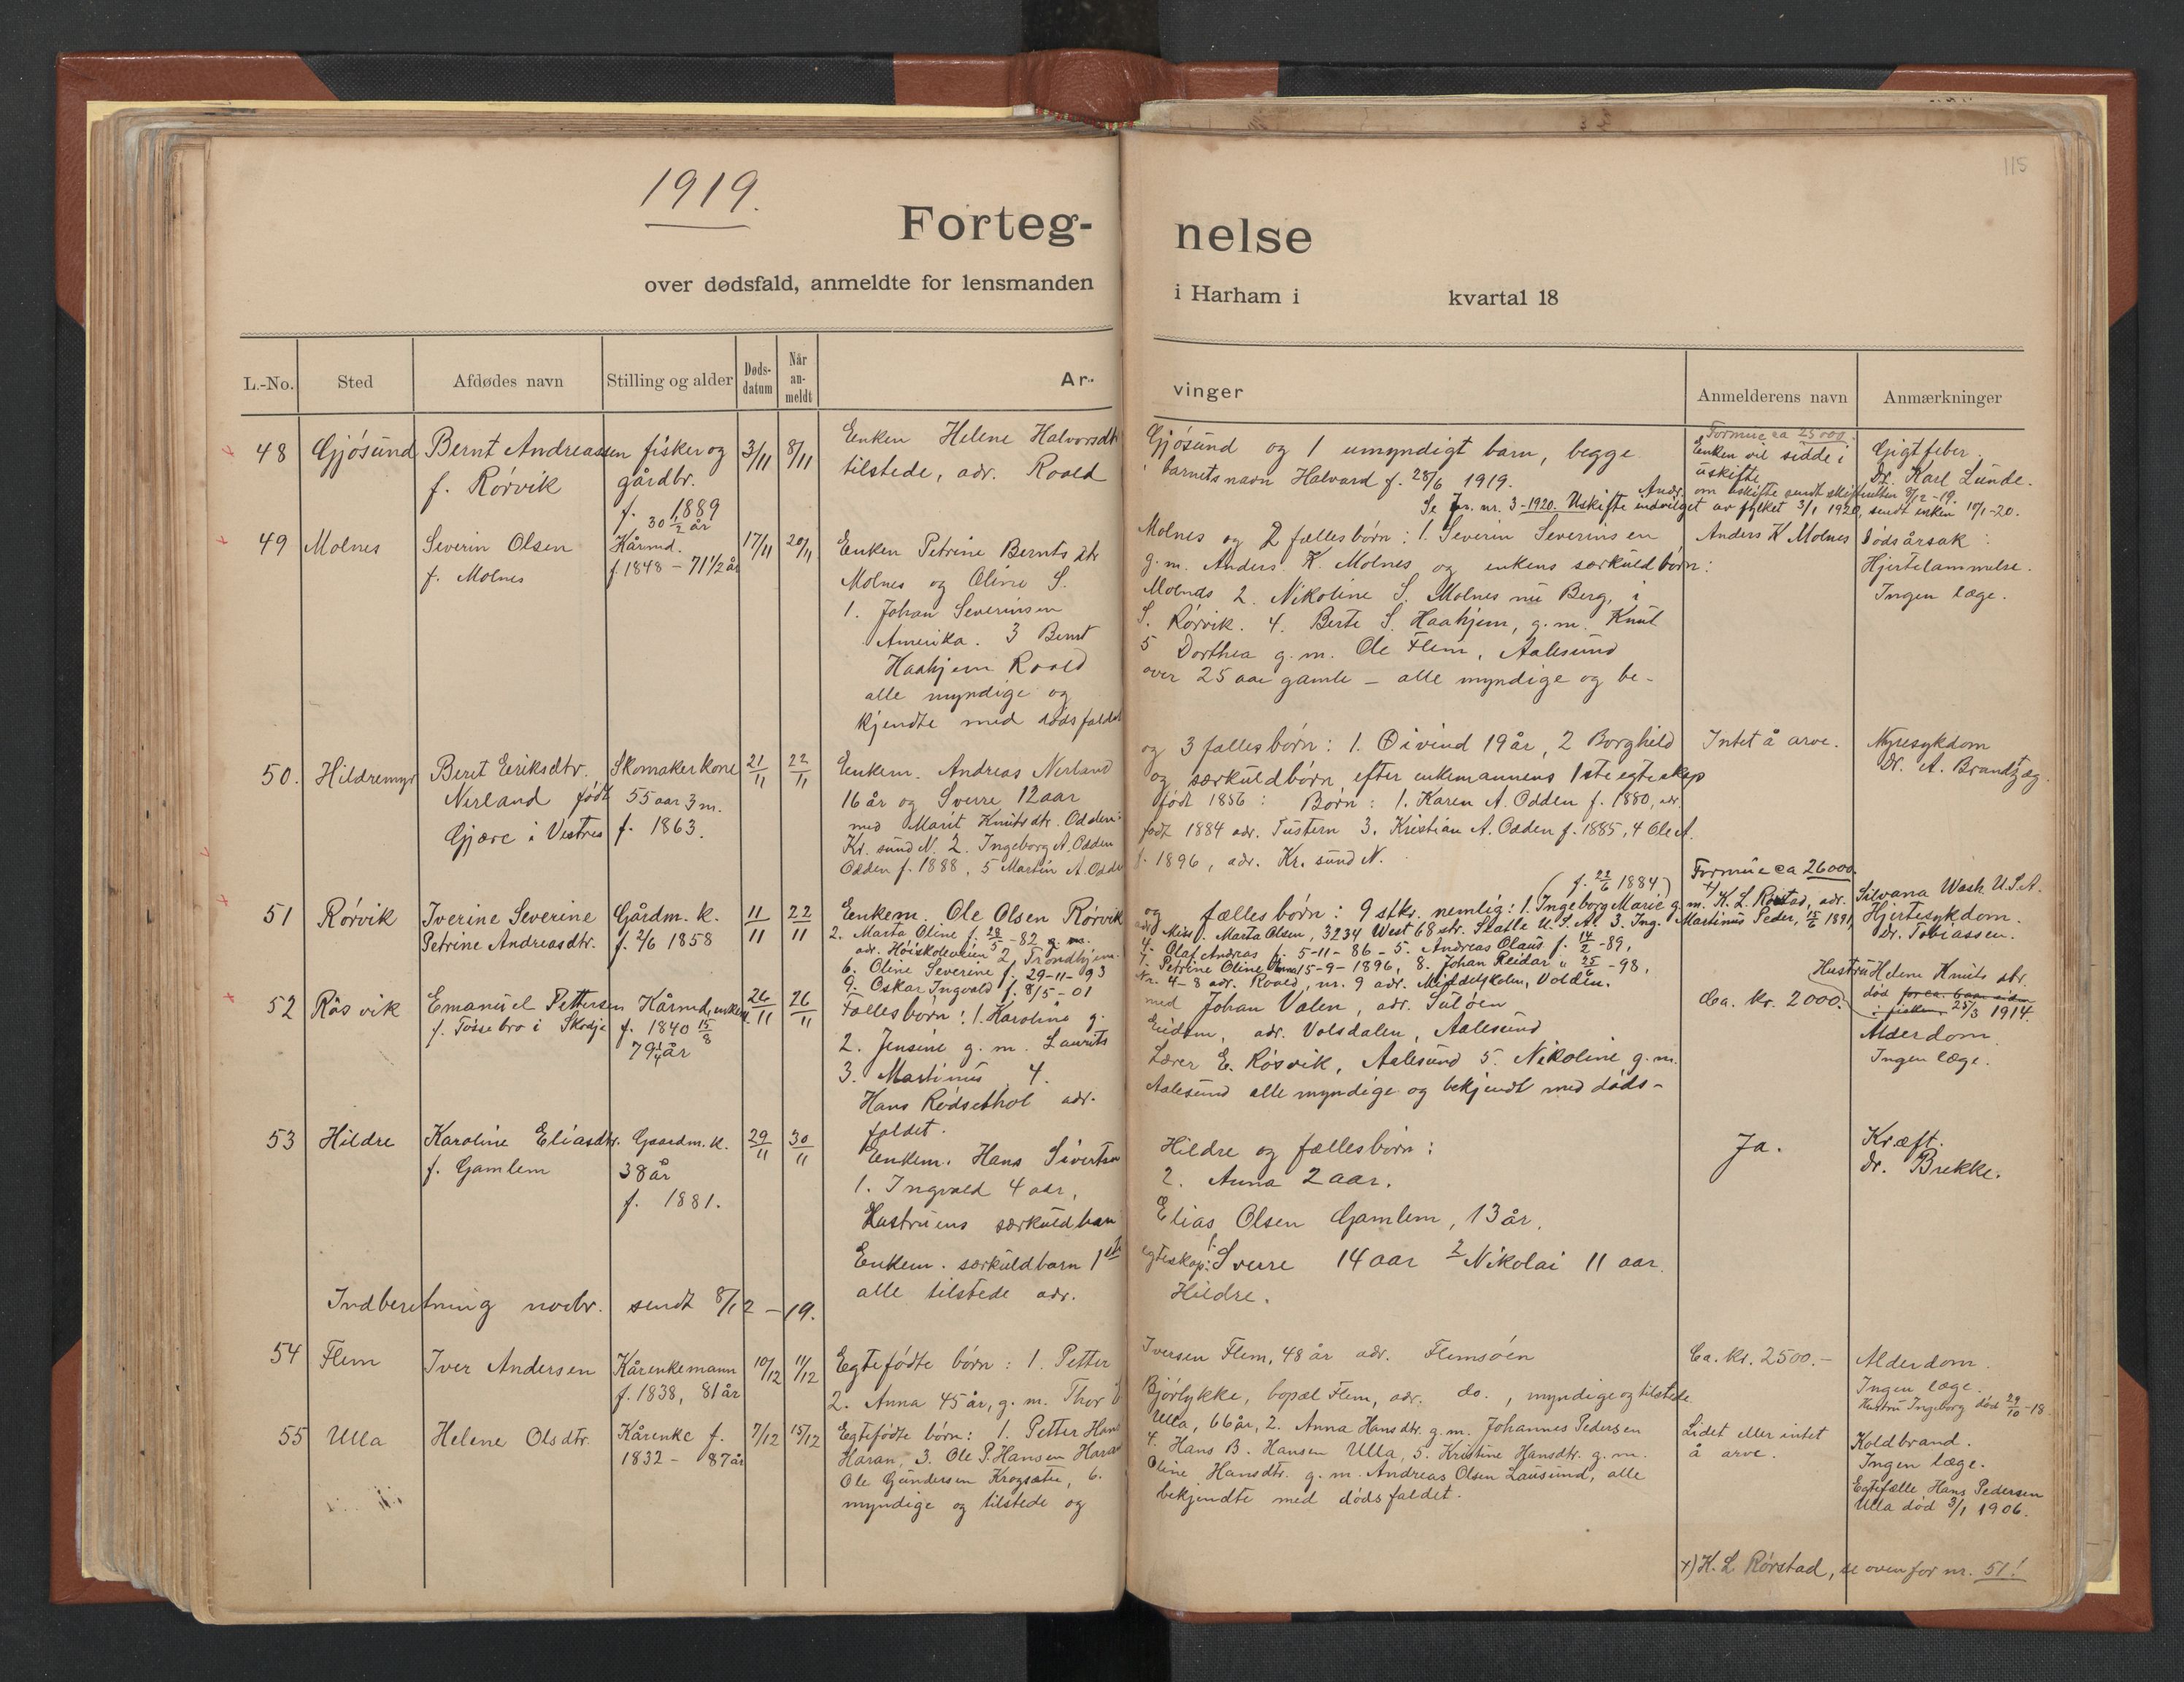 115
1919.
Forteg-nelse
over dødsfald, anmeldte for lensmanden i Harham i kvartal 18
L.-No. Sted Afdødes navn Stilling og alder Døds-datum Når an-meldt Ar-vinger Anmelderens navn Anmærkninger
48 Gjøsund Bernt Andreassen fisker og 3/11 8/11 Enken Helene Halvorsdtr Gjøsund og 1 umyndigt barn, begge Formue ca 25000. Gigtfeber.
f. Rørvik gårdbr. tilstede, adr. Roald barnets navn Halvard f. 28/6 1919. Enken vil sidde i uskifte Dr. Karl Lunde.
f. 1889 Andr. om uskifte sendt skifteretten 8/12-19.
30 1/2 år Se Jnr. nr. 3-1920. Uskifte indvilget av fylket 3/1 1920, sendt enken 10/1-20.
49 Molnes Severin Olsen Kårmd. 17/11 20/11 Enken Petrine Berntsdtr Molnes og 2 fællesbörn: 1. Severin Severinsen Anders K Molnes Dödsårsak:
f. Molnes f. 1848 - 71 1/2 år Molnes og Oline S. g.m. Anders K. Molnes og enkens særkuldbörn: Hjertelammelse.
1. Johan Severinsen Molnes 2. Nikoline S. Molnes nu Berg, i Ingen læge.
Amerika. 3 Bernt S. Rørvik. 4. Berte S. Haahjem, g.m. Knut
Haahjem Roald 5 Dorthea g.m. Ole Flem, Aalesund
alle myndige og over 25 aar gamle - alle myndige og be-
kjendte med dödsfaldet
50. Hildremyr Beret Eriksdtr. Skomakerkone 21/11 22/11 Enkem. Andreas Nerland og 3 fællesbörn: 1. Øivind 19 år, 2 Borghild Intet å arve. Nyresykdom
Nerland född 55 aar 3 m. 16 år og Sverre 12 aar og særkuldbörn efter enkemannens 1ste egteskap Dr. A. Brandtzæg.
Gjære i Vestnes f. 1863. med Marit Knutsdtr. Odden: födt 1856: Börn: 1. Karen A. Odden f. 1880, adr.
Kr. sund N. 2. Ingeborg A. Odden födt 1884 adr. Tustern 3. Kristian A. Odden f. 1885, 4 Ole A.
Odden f. 1888, 5 Martin A. Odden f. 1896, adr. Kr. sund N.
(f. 22/6 1884) Formue ca 26000.
51 Rørvik Iverine Severine Gårdm. k. 11/11 22/11 Enkem. Ole Olsen Rørvik og fællesbörn: 9 stkr. nemlig: 1. Ingeborg Marie g.m. x) K. L. Röstad, adr. Silvana Wash. U.S.A.
Petrine Andreasdtr. f. 2/6 1858 2. Marta Oline f. 28/5-82 adr. Miss. Marta Olsen, 3234 West 68 str. Seatle U.S.A. 3. Ing. Martinus Peder, 15/6 1891, Hjertesykdom.
adr. Höiskoleveien 2, Trondhjem. 4. Olaf Andreas f. 5-11-86 - 5. Andreas Olaus f. 14/2-89, Dr. Tobiassen.
6. Oline Severine f. 29-11-93 7. Petrine Oline 15-9-1896, 8. Johan Reidar 25/-98,
9. Oskar Ingvald f. 8/5-01 Nr. 4-8 adr. Roald, nr. 9 adr. Middelskolen, Volden.
52 Räsvik Emanuel Pettersen Kårmd, enkem. 26/11 26/11 Fællesbörn: 1. Karoline g. med Johan Valen, adr. Sulöen Ca. kr. 2000. Hustru Helene Knutsdtr.
f. Fossebro i Skodje f. 1840 15/8 2. Jensine g.m. Laurits Eidem, adr. Volsdalen, Aalesund död for ca. 6 aar siden 25/3 1914.
79 1/4 år 3. Martinus, 4. Lærer E. Røsvik, Aalesund 5. Nikoline g.m. Alderdom.
Hans Rødsethol adr. Aalesund alle myndige og bekjendt med döds- Ingen læge.
faldet.
53 Hildre Karoline Eliasdtr. Gaardm. k. 29/11 30/11 Enkem. Hans Sivertsen Hildre og fællesbörn: Ja. Kræft.
f. Gamlem 38 år 1. Ingvald 4 aar, 2. Anna 2 aar. Dr. Brekke.
f. 1881. Hustruens særkuldbarn Elias Olsen Gamlem, 13 år.
Enkem. særkuldbarn 1ste egteskap: 1. Sverre 14 aar 2 Nikolai 11 aar.
alle tilstede adr. Hildre.
Indberetning novbr. sendt 8/12-19.
54 Flem Iver Andersen Kårenkemann 10/12 11/12 Egtefödte börn: 1. Petter Iversen Flem, 48 år adr. Flemsöen Ca. kr. 2500.- Alderdom.
f. 1838, 81 år 2. Anna 45 år, g.m. Thor Bjørlykke, bopæl Flem, adr. do., myndige og tilstede Ingen læge.
Hustru Ingeborg död 29/10-18
55 Ulla Helene Olsdtr. Kårenke f. 7/12 15/12 Egtefödte börn: 1. Petter Hans Ulla, 66 år, 2. Anna Hansdtr. g.m. Johannes Pedersen Lidet eller intet Koldbrand.
1832 - 87 år Haran, 3. Ole P. Hansen Haran 4. Hans B. Hansen Ulla, 5. Kristine Hansdtr. g.m. å arve. Ingen læge.
Ole Gundersen Krogsæter, 6. Oline Hansdtr. g.m. Andreas Olsen Lausund, alle Egtefælle Hans Pedersen
myndige og tilstede og bekjendte med dödsfaldet. Ulla död 3/1 1906.
x) K. L Rörstad, se ovenfor nr. 51!